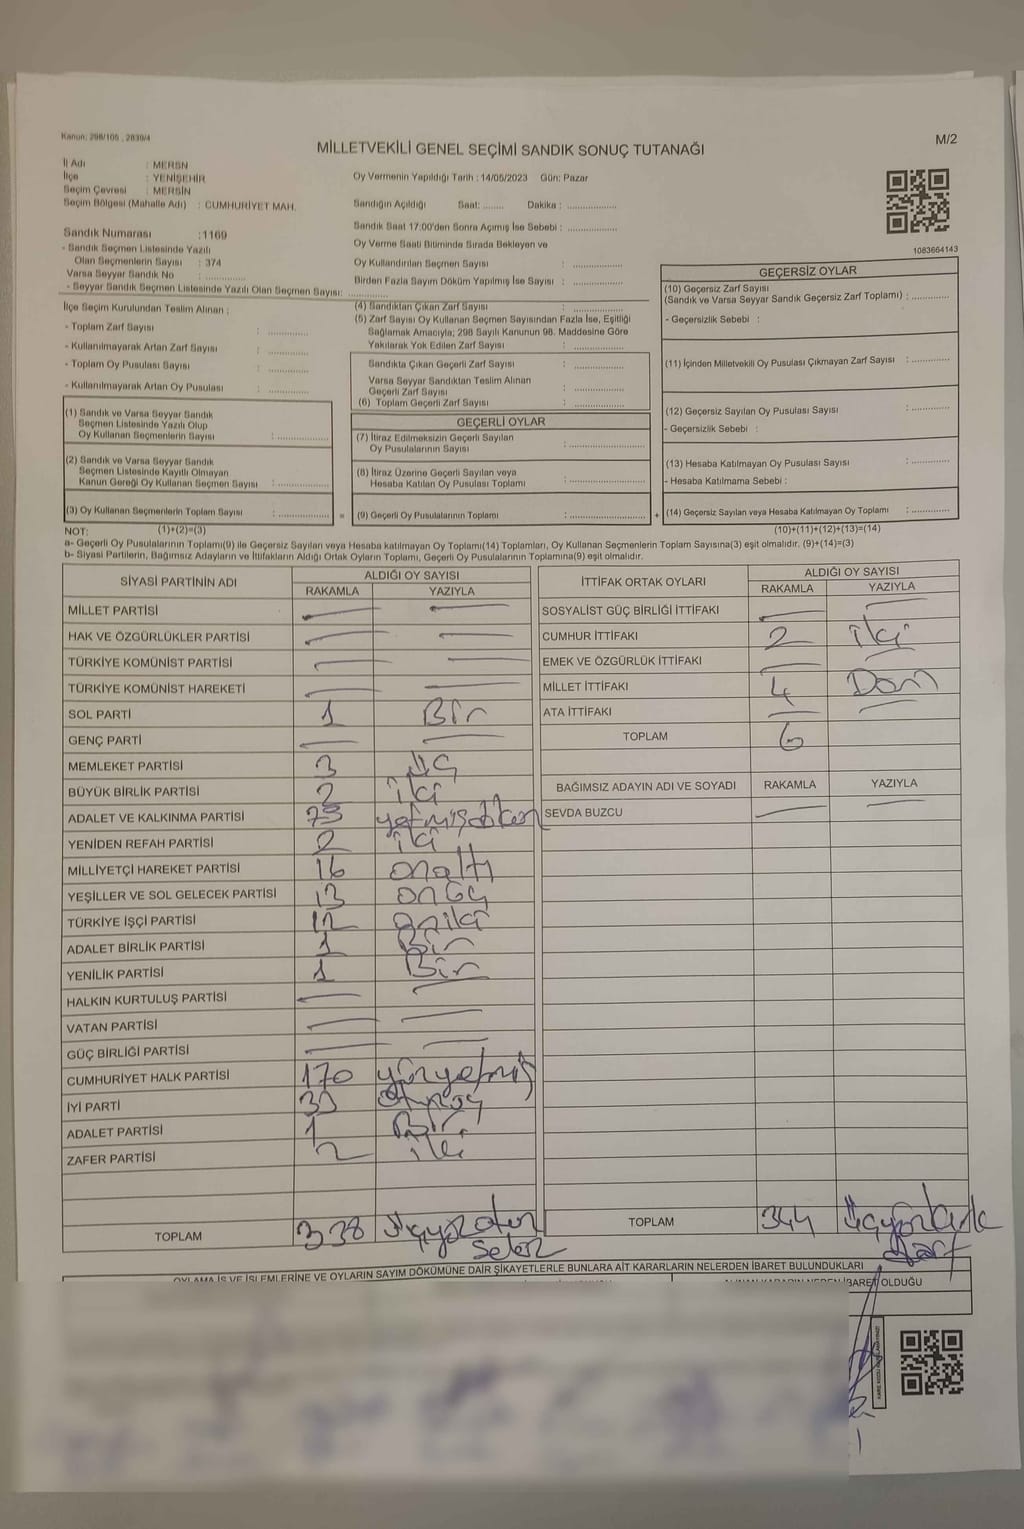 Kanun: 298/105 , 2839/4
M/2
MİLLETVEKİLİ GENEL SEÇİMİ SANDIK SONUÇ TUTANAĞI
İl Adı : MERSİN
İlçe : YENİŞEHİR
Seçim Çevresi : MERSİN
Seçim Bölgesi (Mahalle Adı) : CUMHURİYET MAH.
Sandık Numarası :1169
- Sandık Seçmen Listesinde Yazılı
Olan Seçmenlerin Sayısı : 374
Varsa Seyyar Sandık No : ............
- Seyyar Sandık Seçmen Listesinde Yazılı Olan Seçmen Sayısı: ............
Oy Vermenin Yapıldığı Tarih : 14/05/2023 Gün: Pazar
Sandığın Açıldığı Saat: ....... Dakika : ...............
Sandık Saat 17:00'den Sonra Açımış İse Sebebi : ...............
Oy Verme Saati Bitiminde Sırada Bekleyen ve
Oy Kullandırılan Seçmen Sayısı : ...............
Birden Fazla Sayım Döküm Yapılmış İse Sayısı : ...............
1083664143
İlçe Seçim Kurulundan Teslim Alınan :
- Toplam Zarf Sayısı : ............
- Kullanılmayarak Artan Zarf Sayısı : ............
- Toplam Oy Pusulası Sayısı : ............
- Kullanılmayarak Artan Oy Pusulası : ............
(1) Sandık ve Varsa Seyyar Sandık
Seçmen Listesinde Yazılı Olup
Oy Kullanan Seçmenlerin Sayısı : ...............
(2) Sandık ve Varsa Seyyar Sandık
Seçmen Listesinde Kayıtlı Olmayan
Kanun Gereği Oy Kullanan Seçmen Sayısı : ...............
(3) Oy Kullanan Seçmenlerin Toplam Sayısı : ...............
(4) Sandıktan Çıkan Zarf Sayısı : ...............
(5) Zarf Sayısı Oy Kullanan Seçmen Sayısından Fazla İse, Eşitliği
Sağlamak Amacıyla; 298 Sayılı Kanunun 98. Maddesine Göre
Yakılarak Yok Edilen Zarf Sayısı : ...............
Sandıkta Çıkan Geçerli Zarf Sayısı : ...............
Varsa Seyyar Sandıktan Teslim Alınan
Geçerli Zarf Sayısı : ...............
(6) Toplam Geçerli Zarf Sayısı : ...............
GEÇERLİ OYLAR
(7) İtiraz Edilmeksizin Geçerli Sayılan
Oy Pusulalarının Sayısı : ...............
(8) İtiraz Üzerine Geçerli Sayılan veya
Hesaba Katılan Oy Pusulası Toplamı : ...............
= (9) Geçerli Oy Pusulalarının Toplamı : ............... +
GEÇERSİZ OYLAR
(10) Geçersiz Zarf Sayısı
(Sandık ve Varsa Seyyar Sandık Geçersiz Zarf Toplamı) : ............
- Geçersizlik Sebebi :
(11) İçinden Milletvekili Oy Pusulası Çıkmayan Zarf Sayısı : ............
(12) Geçersiz Sayılan Oy Pusulası Sayısı : ............
- Geçersizlik Sebebi :
(13) Hesaba Katılmayan Oy Pusulası Sayısı : ............
- Hesaba Katılmama Sebebi :
(14) Geçersiz Sayılan veya Hesaba Katılmayan Oy Toplamı : ............
NOT: (1)+(2)=(3) (10)+(11)+(12)+(13)=(14)
a- Geçerli Oy Pusulalarının Toplamı(9) ile Geçersiz Sayılan veya Hesaba katılmayan Oy Toplamı(14) Toplamları, Oy Kullanan Seçmenlerin Toplam Sayısına(3) eşit olmalıdır. (9)+(14)=(3)
b- Siyasi Partilerin, Bağımsız Adayların ve İttifakların Aldığı Ortak Oyların Toplamı, Geçerli Oy Pusulalarının Toplamına(9) eşit olmalıdır.
SİYASİ PARTİNİN ADI ALDIĞI OY SAYISI
RAKAMLA YAZIYLA
MİLLET PARTİSİ — —
HAK VE ÖZGÜRLÜKLER PARTİSİ — —
TÜRKİYE KOMÜNİST PARTİSİ — —
TÜRKİYE KOMÜNİST HAREKETİ — —
SOL PARTİ 1 Bir
GENÇ PARTİ — —
MEMLEKET PARTİSİ 3 üç
BÜYÜK BİRLİK PARTİSİ 2 iki
ADALET VE KALKINMA PARTİSİ 79 yetmişdokuz
YENİDEN REFAH PARTİSİ 2 iki
MİLLİYETÇİ HAREKET PARTİSİ 16 onaltı
YEŞİLLER VE SOL GELECEK PARTİSİ 13 onüç
TÜRKİYE İŞÇİ PARTİSİ 12 oniki
ADALET BİRLİK PARTİSİ 1 Bir
YENİLİK PARTİSİ 1 Bir
HALKIN KURTULUŞ PARTİSİ — —
VATAN PARTİSİ — —
GÜÇ BİRLİĞİ PARTİSİ — —
CUMHURİYET HALK PARTİSİ 170 yüzyetmiş
İYİ PARTİ
ADALET PARTİSİ 1 Bir
ZAFER PARTİSİ 2 iki
TOPLAM 338 üçyüzotuz
sekiz
İTTİFAK ORTAK OYLARI ALDIĞI OY SAYISI
RAKAMLA YAZIYLA
SOSYALİST GÜÇ BİRLİĞİ İTTİFAKI — —
CUMHUR İTTİFAKI 2 iki
EMEK VE ÖZGÜRLÜK İTTİFAKI — —
MİLLET İTTİFAKI 4 Dört
ATA İTTİFAKI — —
TOPLAM 6
BAĞIMSIZ ADAYIN ADI VE SOYADI RAKAMLA YAZIYLA
SEVDA BUZCU — —
TOPLAM 344 üçyüzkırk
dört
OYLAMA İŞ VE İŞLEMLERİNE VE OYLARIN SAYIM DÖKÜMÜNE DAİR ŞİKAYETLERLE BUNLARA AİT KARARLARIN NELERDEN İBARET BULUNDUKLARI
ALINAN KARARIN NEDEN İBARET OLDUĞU